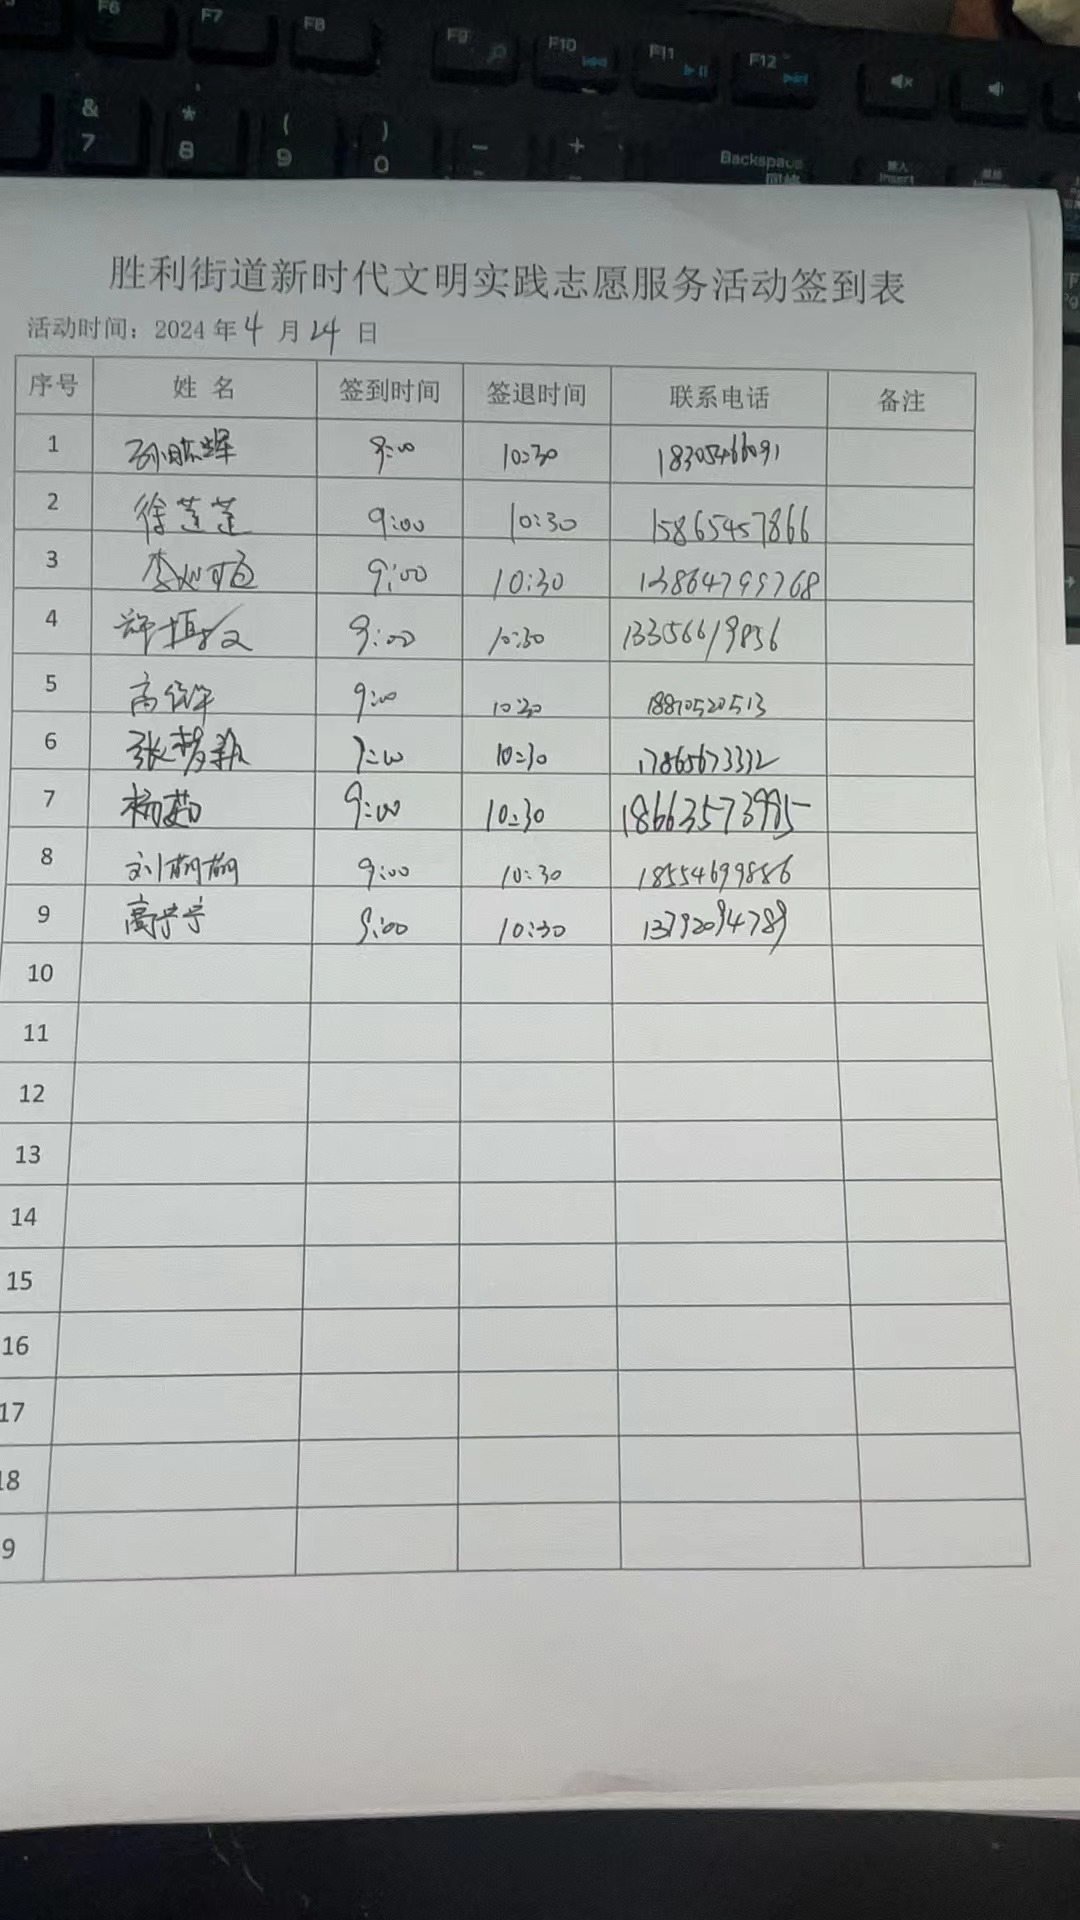 F6 F7 F8 F9 F10 F11 F12
& * ( ) — +
7 8 9 0 - = Backspace 输入 Insert
胜利街道新时代文明实践志愿服务活动签到表
活动时间：2024年4月24日
序号 姓 名 签到时间 签退时间 联系电话 备注
1 9:00 10:30 18305466091
2 徐莲莲 9:00 10:30 15865457866
3 9:00 10:30 13864799768
4 9:00 10:30 13356619856
5 9:00 10:30 18810520513
6 张梦瓢 9:00 10:30 17865673332
7 杨茹 9:00 10:30 18663573995
8 刘萌萌 9:00 10:30 18554699886
9 高学宁 9:00 10:30 13792094789
10
11
12
13
14
15
16
17
18
9